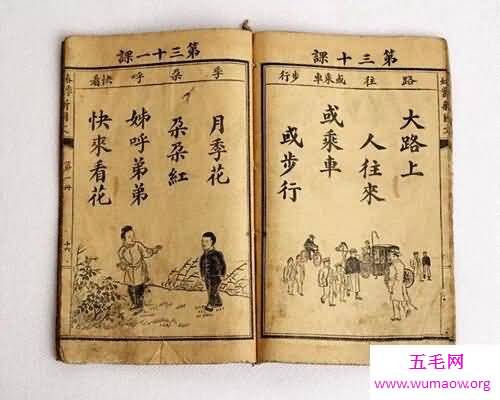 第三十課
路 往 或乘車 步行
大路上
人往來
或乘車
或步行
第三十一課
季 朵 呼 快看
月季花
朵朵紅
姊呼弟弟
快來看花
第一冊
十六
五毛网
www.wumaow.org